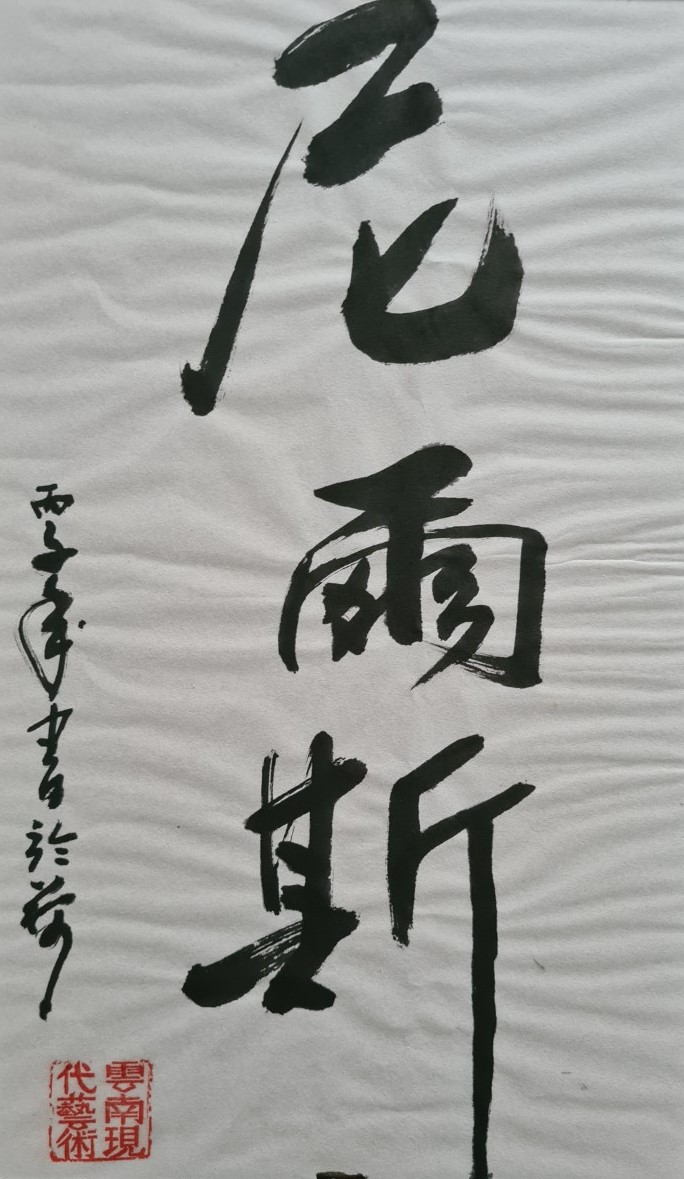 尼爾斯
丙子年書於荷
雲南現
代藝術